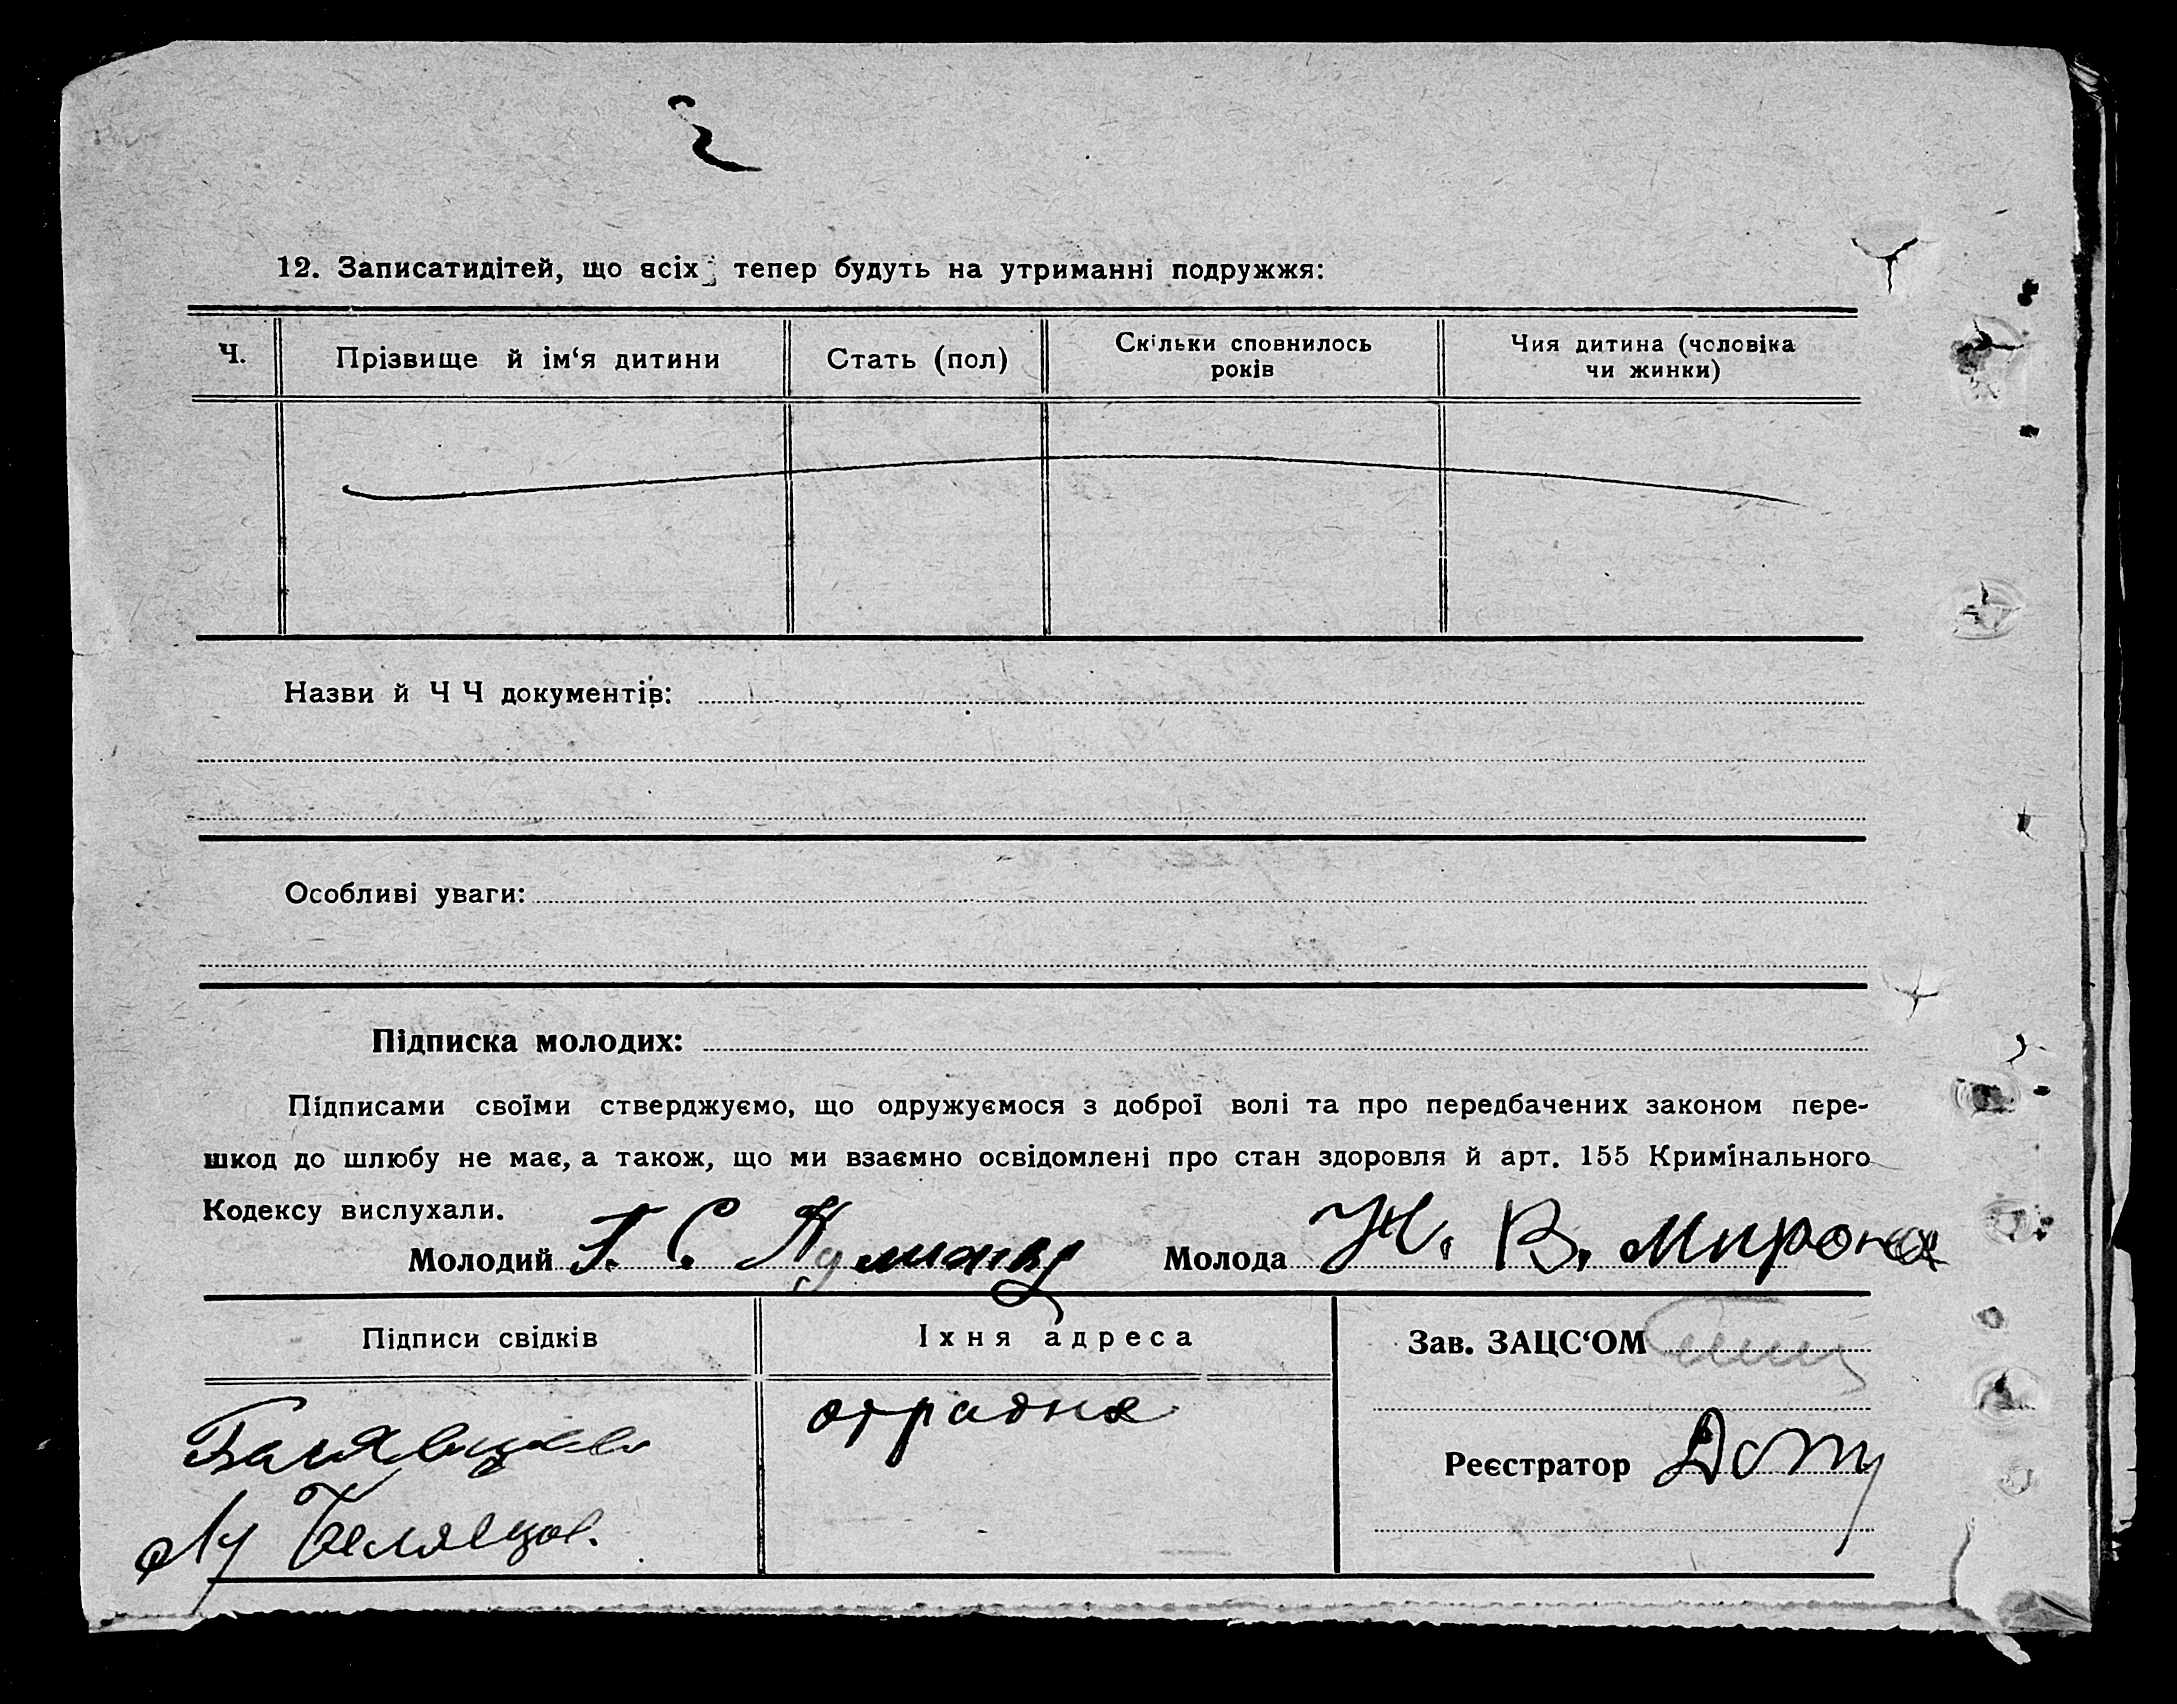 2
12. Записатидітей, що всіх тепер будуть на утриманні подружжя:
Ч.
Прізвище й ім‘я дитини
Стать (пол)
Скільки сповнилось
років
Чия дитина (чоловіка
чи жинки)
Назви й Ч Ч документів:
Особливі уваги:
Підписка молодих:
Підписами своїми стверджуємо, що одружуємося з доброї волі та про передбачених законом пере-
шкод до шлюбу не має, а також, що ми взаємно освідомлені про стан здоровля й арт. 155 Кримінального
Кодексу вислухали.
Молодий Г. С.
Молода Н. В. Мирона
Підписи свідків
Їхня адреса
Зав. ЗАЦС‘ОМ
отрадна
Реєстратор